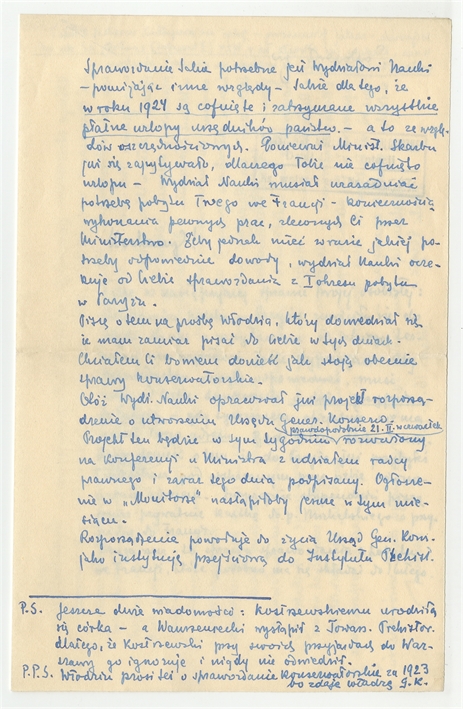 Sprawozdanie takie potrzebne jest Wydziałowi Nauki
– pomijając inne względy – także dla tego, że
w roku 1924 są cofnięte i zatrzymane wszystkie
płatne urlopy urzędników państw. – a to ze wzglę-
dów oszczędnościowych. Ponieważ Minist. Skarbu
już się zapytywało, dlaczego Tobie nie cofnięto
urlopu – Wydział Nauki musiał uzasadniać
potrzebę pobytu Twego we Francji – koniecznością
wykonania pewnych prac, zleconych Ci przez
Ministerstwo. Żeby jednak mieć w razie jakiej po-
trzeby odpowiednie dowody, wydział Nauki ocze-
kuje od Ciebie sprawozdania z I okresu pobytu
w Paryżu.
Piszę o tem na prośbę Włodzia, który dowiedział się
że mam zamiar pisać do Ciebie w tych dniach.
Chciałem Ci bowiem donieść jak stoją obecnie
sprawy konserwatorskie.
Otóż Wydz. Nauki opracował już projekt rozporzą-
dzenia o utworzeniu Urzędu Gener. Konserw.
prawdopodobnie 21. II. w czwartek
Projekt ten będzie w tym tygodniu rozważony
na Konferencji u Ministra z udziałem radcy
prawnego i zaraz tego dnia podpisany. Ogłosze-
nie w „Monitorze" nastąpiłoby jeszcze w tym mie-
siącu.
Rozporządzenie powołuje do życia Urząd Gen. Kons.
jako instytucję przejściową do Instytutu Prehist.
P.S. Jeszcze dwie wiadomości: Kostrzewskiemu urodziła
się córka – a Wawrzeniecki wystąpił z Towarz. Prehistor.
dlatego, że Kostrzewski przy swoich przyjazdach do War-
szawy go ignoruje i nigdy nie odwiedził.
P.P.S. Włodzio prosi też o sprawozdanie konserwatorskie za 1923
bo zdaje władzę G. K.